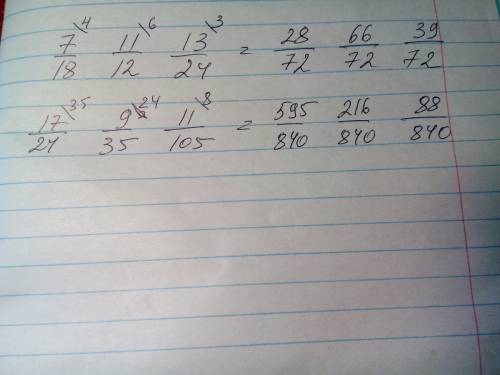 7/18 \4 11/12 \6 13/24 \3 = 28/72 66/72 39/72
17/24 \35 9/35 \24 11/105 \8 = 595/840 216/840 88/840